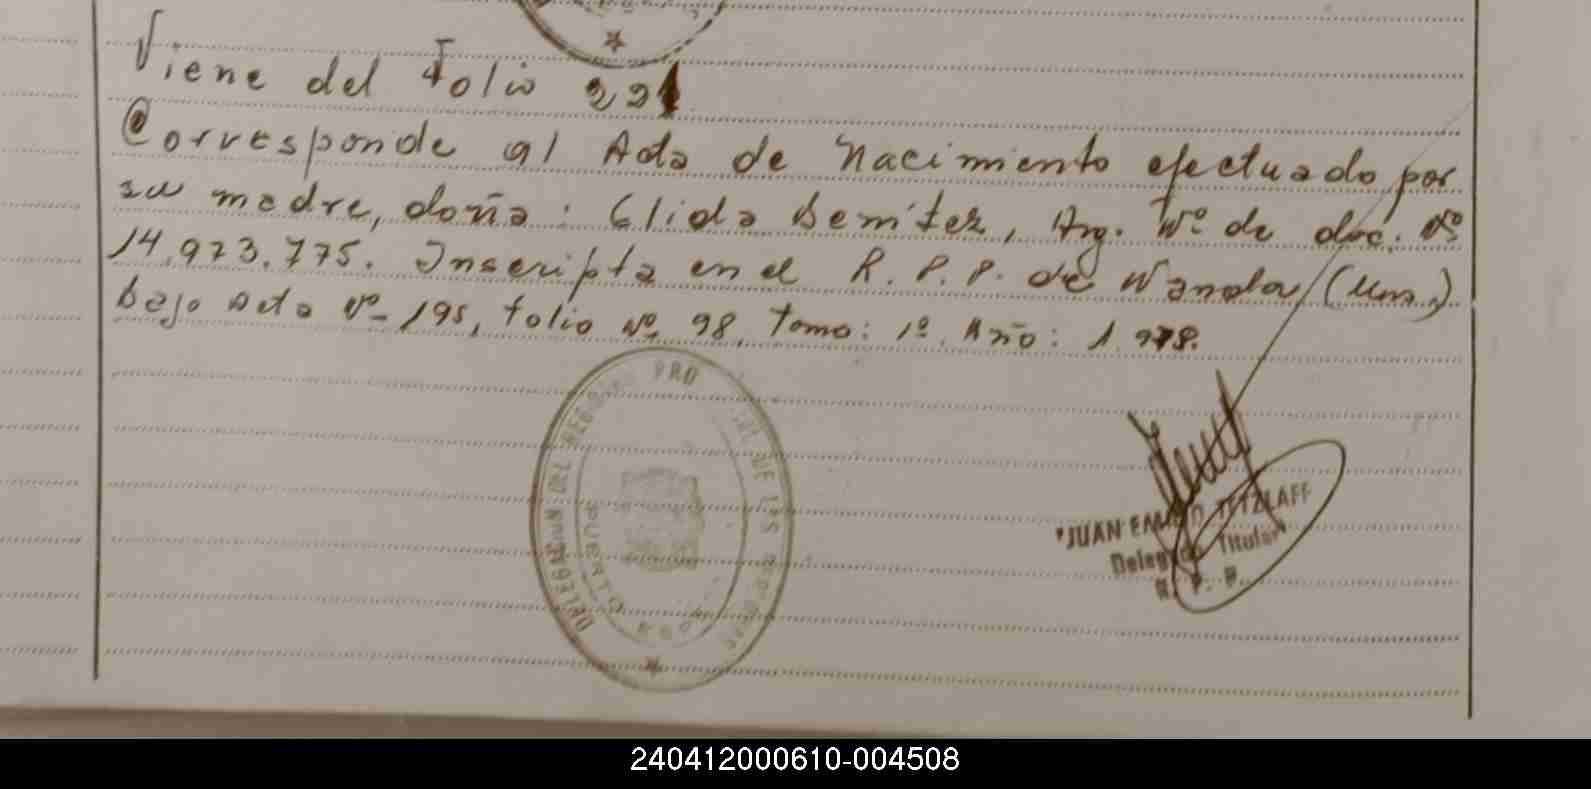 Viene del Folio 221
Corresponde al Acta de Nacimiento efectuado por
su madre, doña: Elida Benitez, Arg. Nº de doc. Nº
14.973.775. Inscripta en el R. P. P. de Wanda (Mns.)
bajo Acta Nº 195, folio Nº 98, Tomo: 1º. Año: 1.978.
DELEGACION DEL REGISTRO PRO DE LAS PERSONAS
PUERTO
JUAN TETZLAFF
Delegado Titular
R. P. P.
240412000610-004508